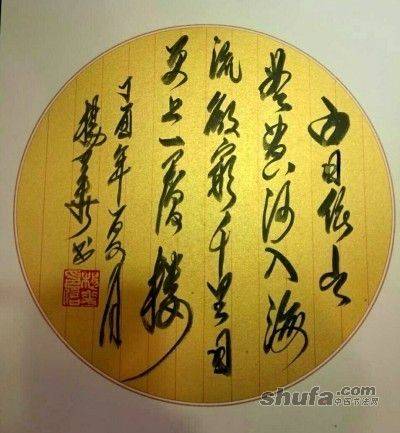 白日依山
盡黄河入海
流欲窮千里目
更上一層樓
丁酉年夏月
shufa.com
中国书法网